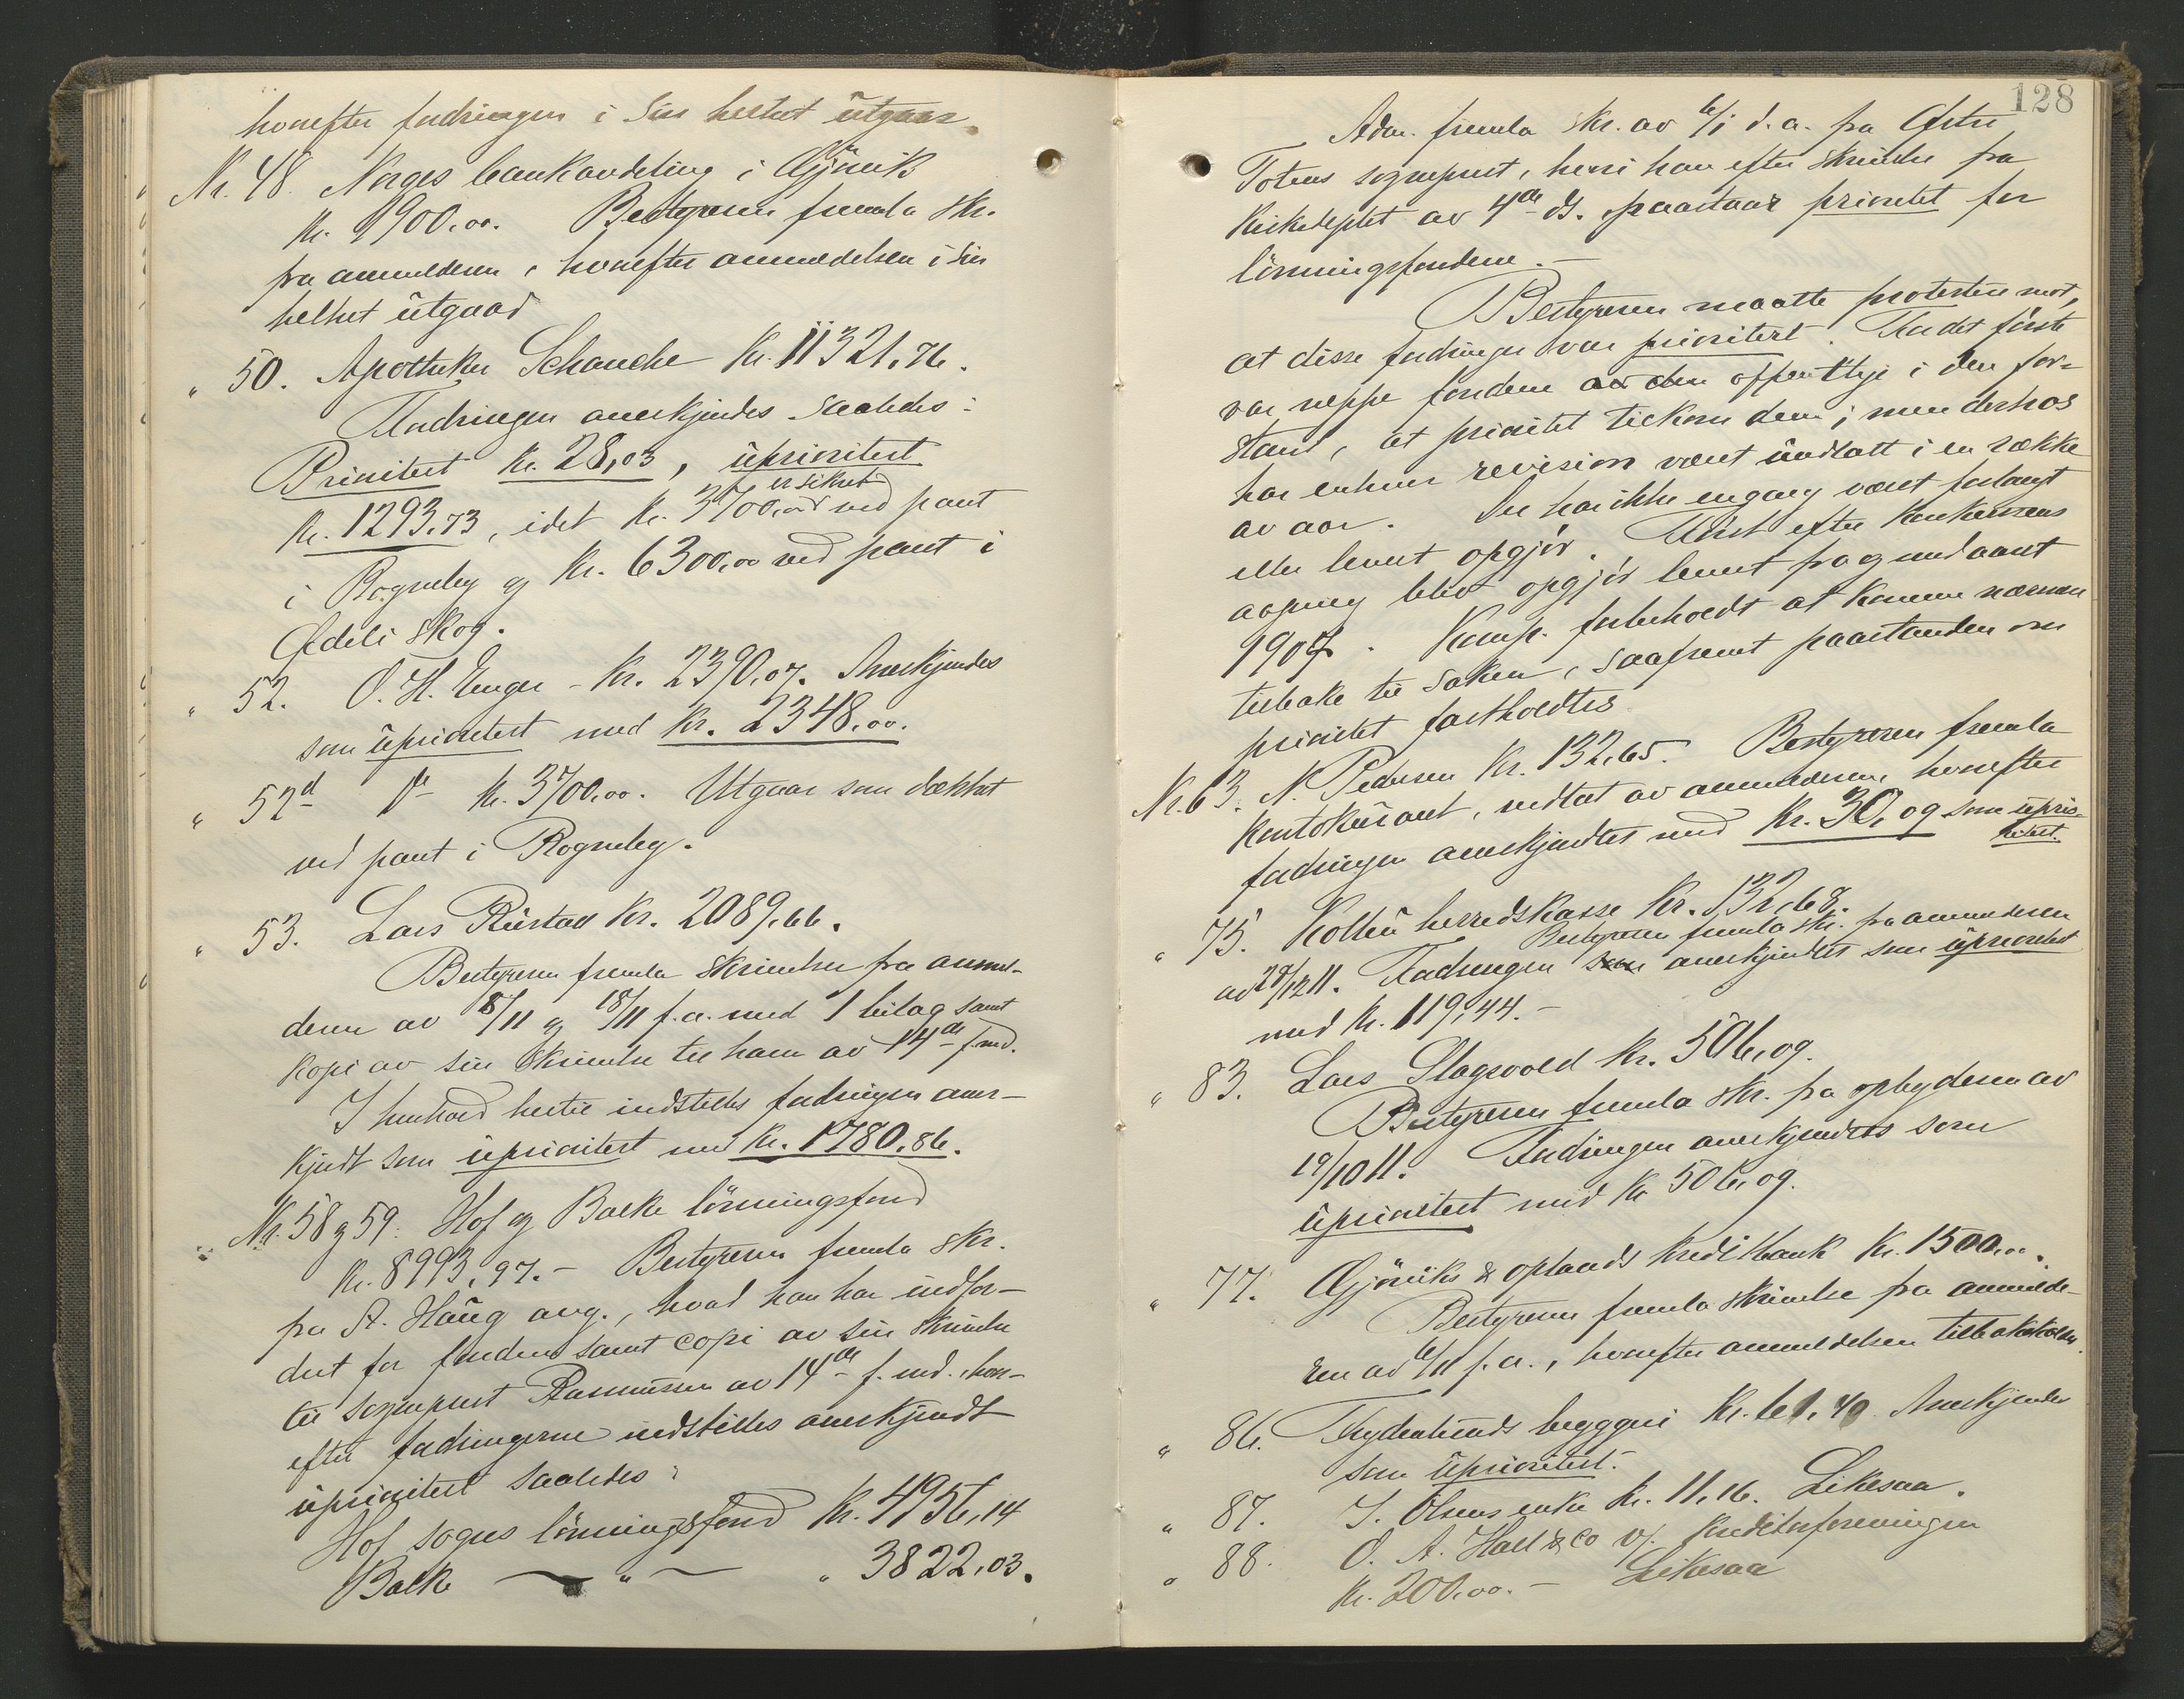 hvorefter fordringen i sin helhet ütgaar.
Nr. 48. Norges bankavdeling i Gjövik
Kr. 1900.00. Bestyreren fremla skr.
fra anmelderen, hvorefter anmeldelsen i sin
helhet ütgaar
" 50. Apotheker Schanche Kr. 11321.76.
Fordringen anerkjendes saaledes:
Prioritert Kr. 28,03, üprioritert
er sikret
Kr. 1293.73, idet Kr. 3700.00 ved pant
i Rogneby og Kr. 6300,00 ved pant i
Ødeli skog.
" 52. O. H. Enger - Kr. 2390,07. Anerkjendes
som üprioritert med Kr. 2348.00.
" 52d do Kr. 3700.00. Utgaar som dækket
ved pant i Rogneby.
" 53. Lars Rüstad Kr. 2089.66.
Bestyreren fremla skrivelser fra anmel-
deren av 8/11 og 18/11 f.a. med 1 bilag samt
kopi av sin skrivelse til ham av 14de f.md.
I henhold hertil indstilles fordringen aner-
kjendt som üprioritert med Kr. 1780.86.
Nr. 58 og 59. Hof og Balke lönningsfond
Kr. 8993,97.- Bestyreren fremla skr.
fra A. Haüg ang., hvad han har indfor-
dret for fondene samt copi av sin skrivelse
til sogneprest Rasmussen av 14de f. md. hvor-
efter fordringerne indstilles anerkjendt
üprioritert saaledes:
Hof sogns lönningsfond Kr. 4956,14
Balke — " — " 3822,03.
128
Adm. fremla skr. av 6/1 d.a. fra Østre
Totens sogneprest, hvori han efter skrivelse fra
Kirkedeptet av 4de ds. paastaar prioritet for
lönningsfondene.-
Bestyreren maatte protestere mot,
at disse fordringer var prioritert. For det förste
var neppe fondene av den offentlige i den for-
stand, at prioritet tilkom dem; men derhos
har enhver revision været ündlatt i en række
av aar. Der har ikke engang været forlangt
eller levert opgjör. Först efter konkursens
aapning blev opgjör levert fra og med aaret
1907. Komp. forbeholdt at komme nærmere
tilbake til saken, saafremt paastanden om
prioritet fastholdtes
Nr. 63. N. Pedersen Kr. 132,65. Bestyreren fremla
kontokürant, vedtat av anmelderen, hvorefter
fordringen anerkjendtes med Kr. 30,09 som üprio-
ritert.
" 75. Kolbü herredskasse Kr. 132,68.
Bestyreren fremla skr. fra anmelderen
av 28/12 11. Fordringen anerkjendtes som üprioritert
med Kr. 119,44.-
" 83. Lars Slagsvold Kr. 506,09.
Bestyreren fremla skr. fra opbyderen av
19/10 11. Fordringen anerkjendtes som
üprioritert med Kr 506,09.
" 77. Gjöviks & oplands Kreditbank Kr. 1500,00.
Bestyreren fremla skrivelse fra anmelde-
ren av 6/11 f.a., hvorefter anmeldelsen tilbakekaldes.
" 86. Frydenlunds bryggeri Kr. 61.40 Anerkjendes
som üprioritert.
" 87. J. Olsens enke Kr. 11,16. Likesaa.
" 88. O. A. Hall & Co v/ Kreditorforeningen
Kr. 200.00.- Likesaa